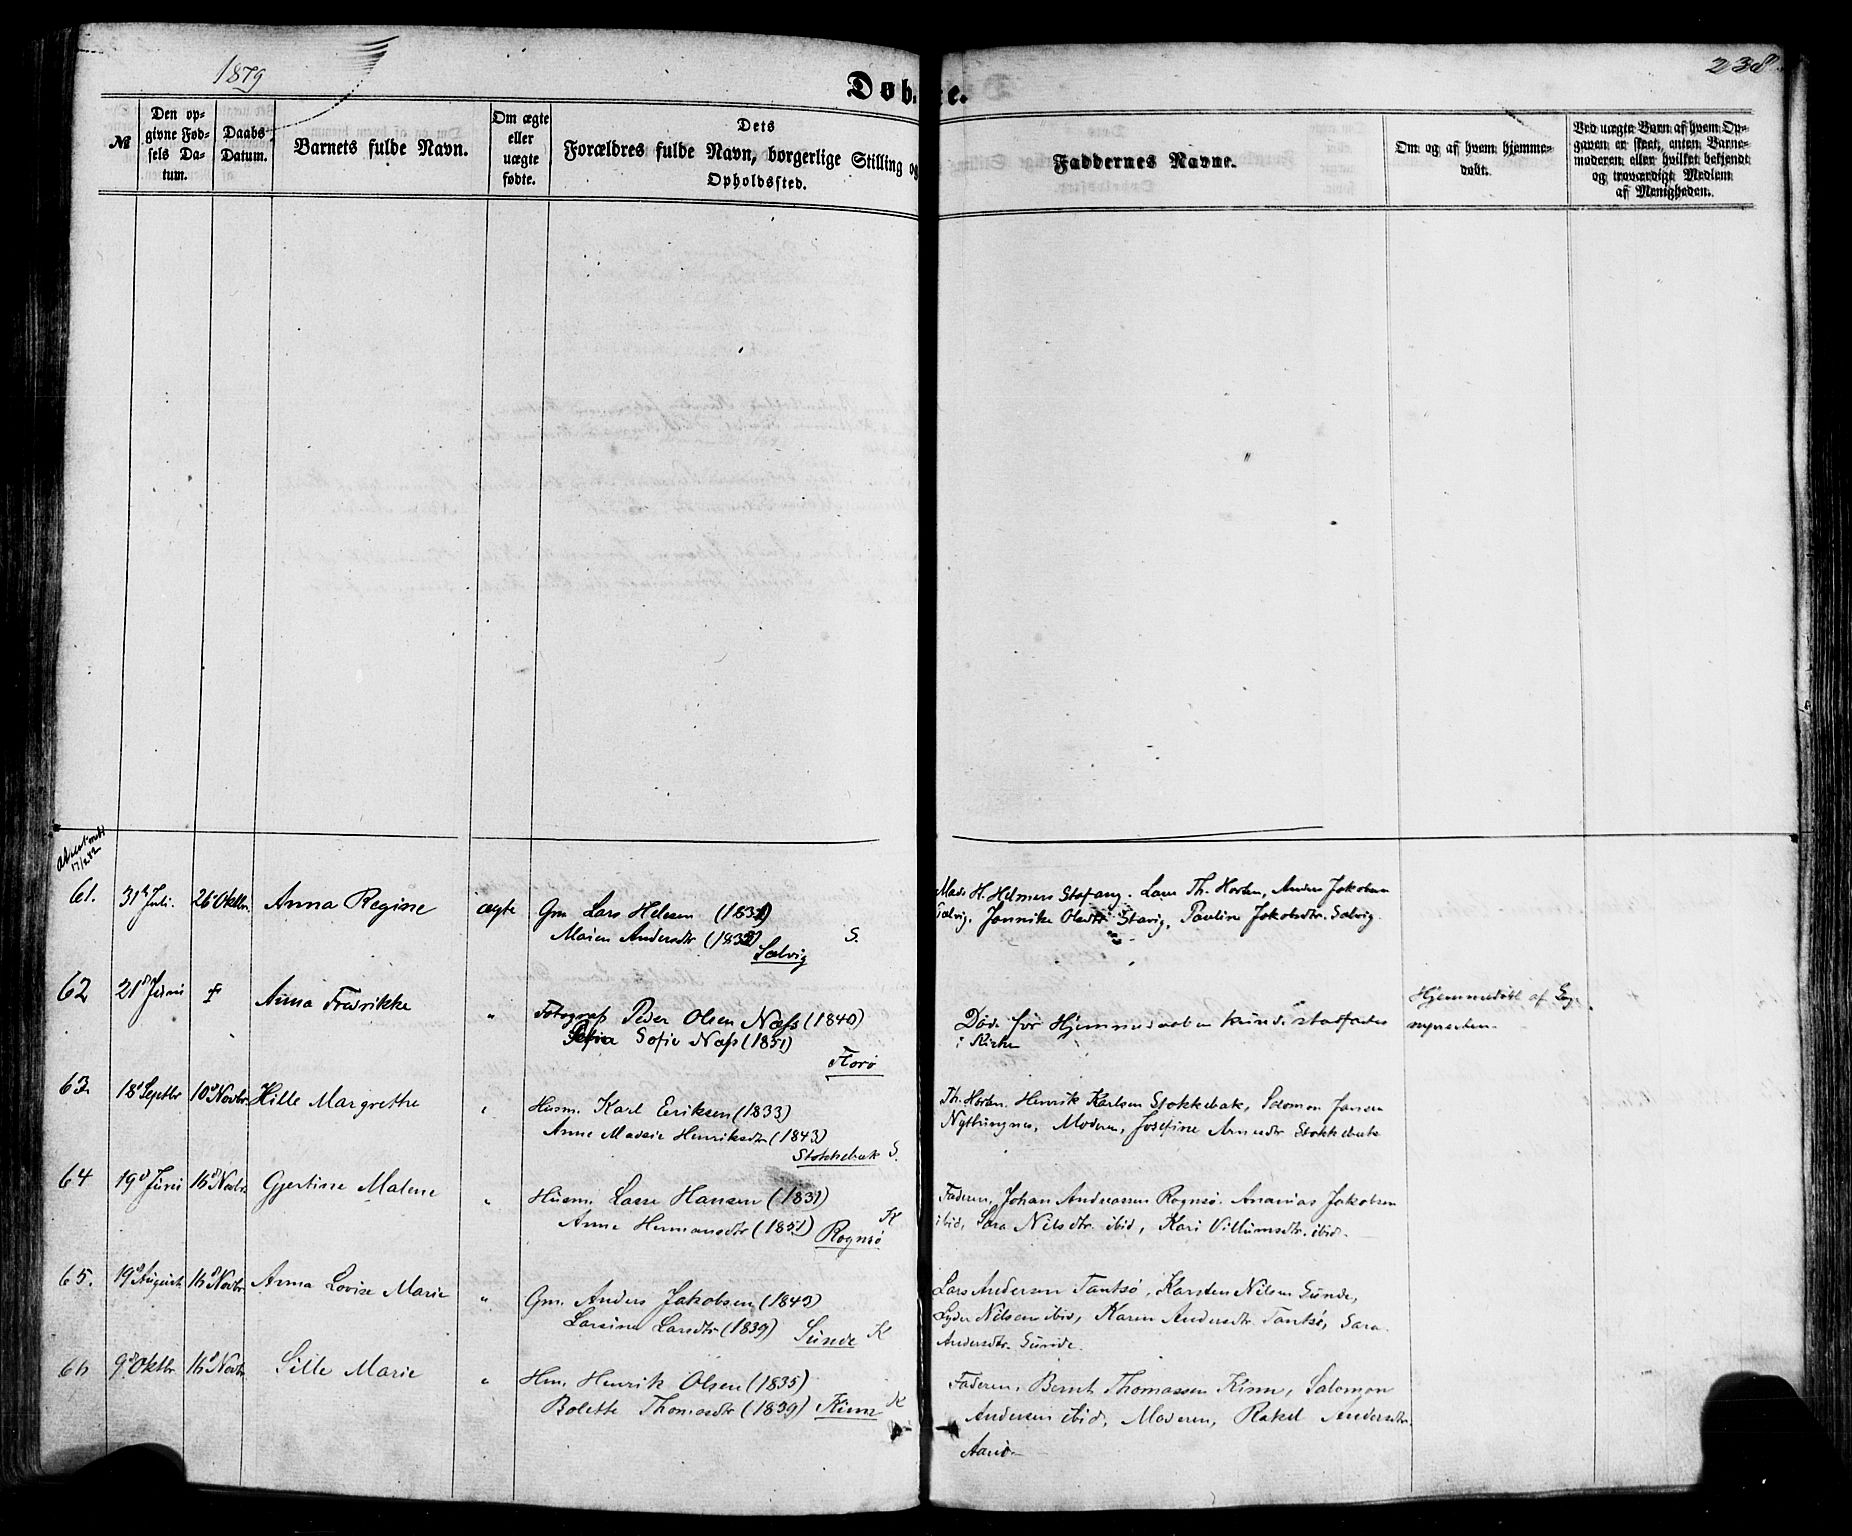 1879
238.
Døbte.
№
Den op-
givne Fød-
sels Da-
tum.
Daabs
Datum.
Barnets fulde Navn.
Om ægte
eller
uægte
fødte.
Dets
Forældres fulde Navn, borgerlige Stilling og
Opholdssted.
Faddernes Navne.
Om og af hvem hjemme-
døbt.
Ved uægte Børn af hvem Op-
gaven er skeet, enten Barne-
moderen eller hvilket bekjendt
og troværdigt Medlem
af Menigheden.
17/2 82
61. 31te Juli. 26 Oktbr. Anna Regine ægte Gm. Lars Helesen
Maren Andersdtr Sælvig S.
Mads H. Helmers Stafang. Lars Th. Horten, Anders Jakobsen
Sælvig, Jannike Olsdtr Stavig, Pauline Jakobsdtr. Sælvig.
62 21de Juni † Anna Fredrikke " Fotograf Peder Olsen Næss (1840)
Sofie Næss (1851)
Florø
Døde før
i Kirken
Hjemmedøbt af Sog-
nepræsten.
63. 18de Septbr 10de Novbr. Hille Margrethe " Husm. Karl Eriksen (1833)
Anne Madsie Henriksdtr (1843)
Stokkebæk S.
Th. Horten. Henrik Karlsen Stokkebæk, Salomon Jansen
Moderen, Josefine Arnesdtr Stokkebæk
64 19de Juni 16de Novbr. Gjertine Malene " Husm. Lasse Hansen (1831)
Anne Hermansdtr (1851) Rognsø K
Faderen, Johan Andreassen Rognsø. Ananias Jakobsen
ibid, Sara Nilsdtr ibid, Kari Villumsdtr. ibid.
65. 19de August 16de Novbr. Anna Lovise Marie " Gm. Anders Jakobsen (1843)
Larsine Larsdtr (1839) Sunde K
Lars Andersen Tantsø, Karsten Nilsen Sunde,
Lyder Nilsen ibid, Karen Andersdtr. Tantsø, Sara
Andersdtr. Sunde.
66 9de Oktbr 16de Novbr Sille Marie " Hm. Henrik Olsen (1835)
Bolette Thomasdtr (1839) Kinn K
Faderen, Bernt Thomassen Kinn, Salomon
Andersen ibid, Moderen, Rakel Andersdtr.